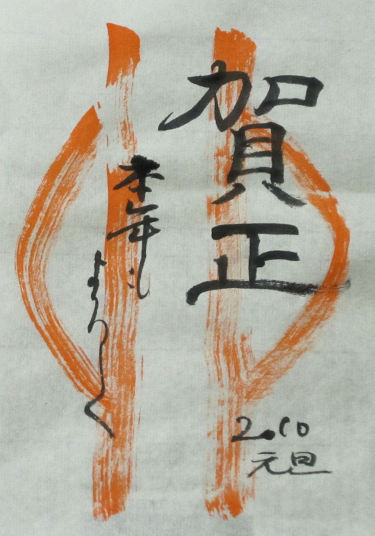 賀正
本年も
よろしく
2010
元旦